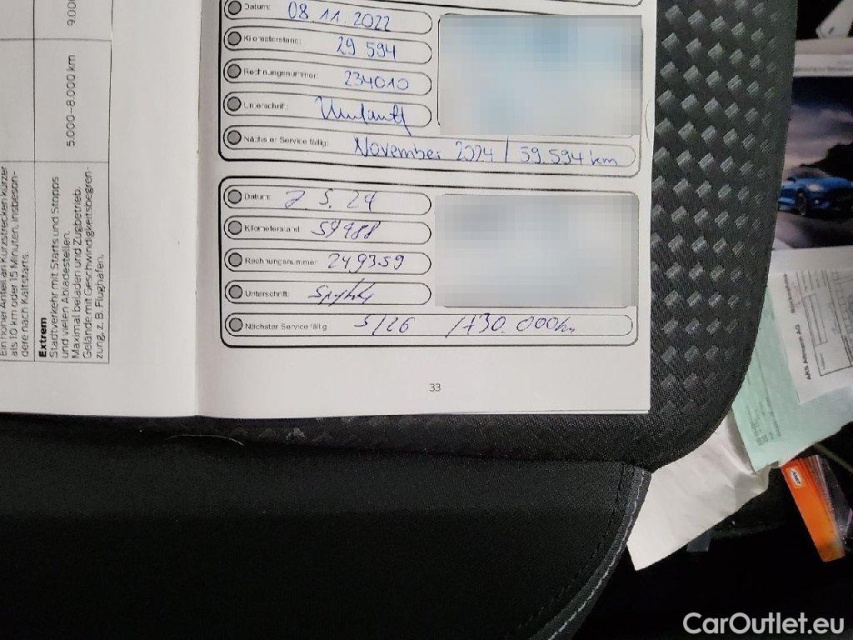 9.00
5.000–8.000 km
Ein hoher Anteil an Kurzstrecken kürzer
als 10 km oder 15 Minuten, insbeson-
dere nach Kaltstarts.
Extrem
Stadtverkehr mit Starts und Stopps
und vielen Abladestellen.
Maximal beladen und Zugbetrieb.
Gelände mit Geschwindigkeitsbegren-
zung, z. B. Flughafen.
Datum: 08.11.2022
Kilometerstand: 29 594
Rechnungsnummer: 234010
Unterschrift:
Nächster Service fällig: November 2024 / 59.594 km
Datum: 7 5. 24
Kilometerstand 59488
Rechnungsnummer 249359
Unterschrift:
Nächster Service fällig 5/26 /+30.000km
33
CarOutlet.eu